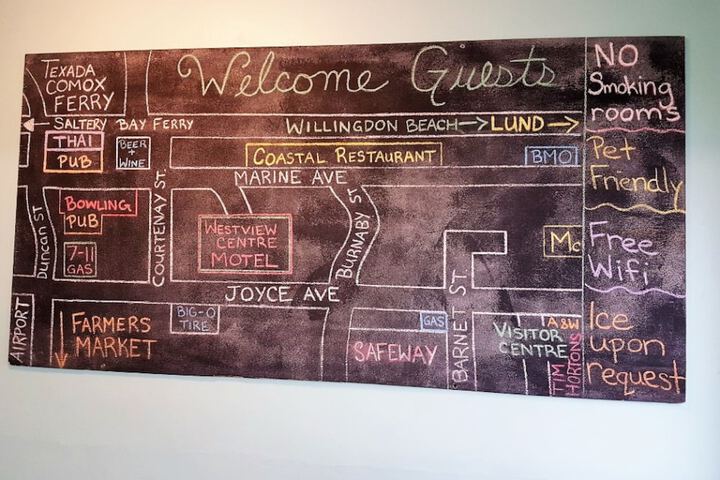 Welcome Guests
TEXADA
COMOX
FERRY
← SALTERY BAY FERRY
WILLINGDON BEACH → LUND →
THAI
PUB
BEER
+
WINE
COASTAL RESTAURANT
BMO
MARINE AVE
DUNCAN ST
BOWLING
PUB
7-11
GAS
COURTENAY ST.
WESTVIEW
CENTRE
MOTEL
BURNABY ST
Mc
JOYCE AVE
AIRPORT
FARMERS
MARKET
BIG-O
TIRE
SAFEWAY
GAS
BARNET ST
VISITOR
CENTRE
A&W
TIM
HORTONS
NO
Smoking
rooms
Pet
Friendly
Free
Wifi
Ice
upon
request